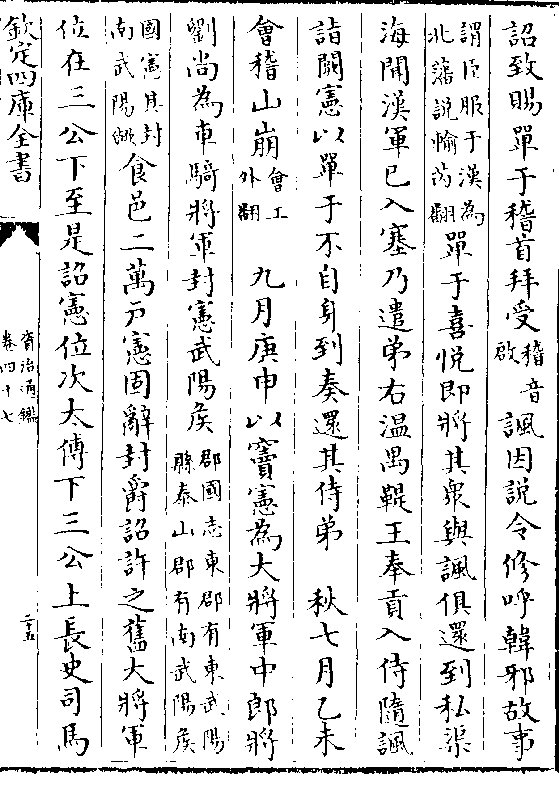 詔致賜單于稽首拜受稽音啟諷因説令修呼韓邪故事
謂臣服于漢為北藩説愉芮翻單于喜悦即將其衆與諷俱還到私渠
海聞漢軍已入塞乃遣弟右温禺鞮王奉貢入侍隨諷
詣闕憲以單于不自身到奏還其侍弟 秋七月乙未
會稽山崩會工外翻 九月庚申以竇憲為大將軍中郎將
劉尚為車騎將軍封憲武陽侯郡國志東郡有東武陽縣泰山郡有南武陽侯
國憲其封南武陽歟食邑二萬户憲固辭封爵詔許之舊大將軍
位在三公下至是詔憲位次太傅下三公上長史司馬
欽定四庫全書
資治通鑑
卷四十七
二十五